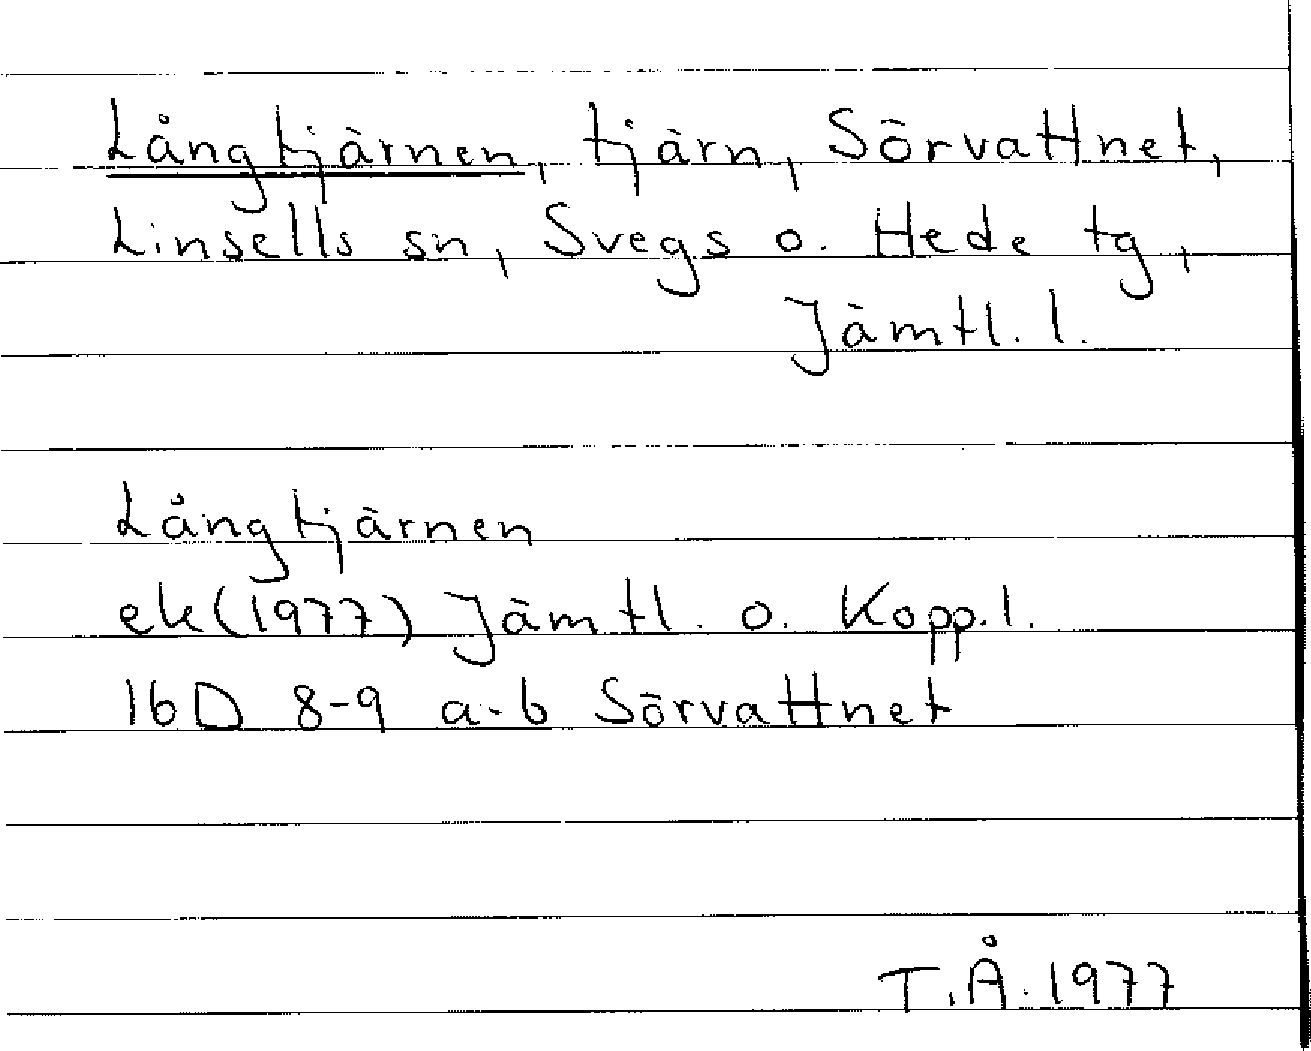 Långtjärnen, tjärn, Sörvattnet,
Linsells sn, Svegs o. Hede tg,
Jämtl. l.
Långtjärnen
ek (1977) Jämtl. o. Kopp. l.
16D 8-9 a-b Sörvattnet
T.Å. 1977